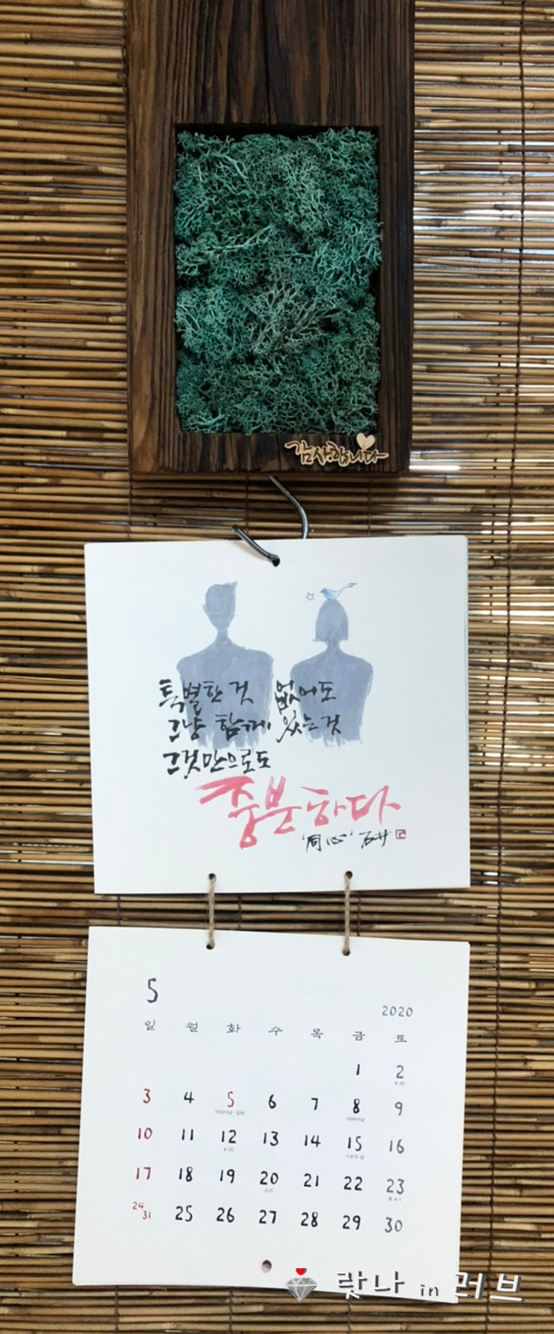 감사합니다
특별한 것 없어도
그냥 함께 있는 것
그것만으로도
충분하다
'同心' 石井
5
2020
일 월 화 수 목 금 토
1 2
3 4 5 6 7 8 9
10 11 12 13 14 15 16
17 18 19 20 21 22 23
24 31 25 26 27 28 29 30
랏나 in 러브